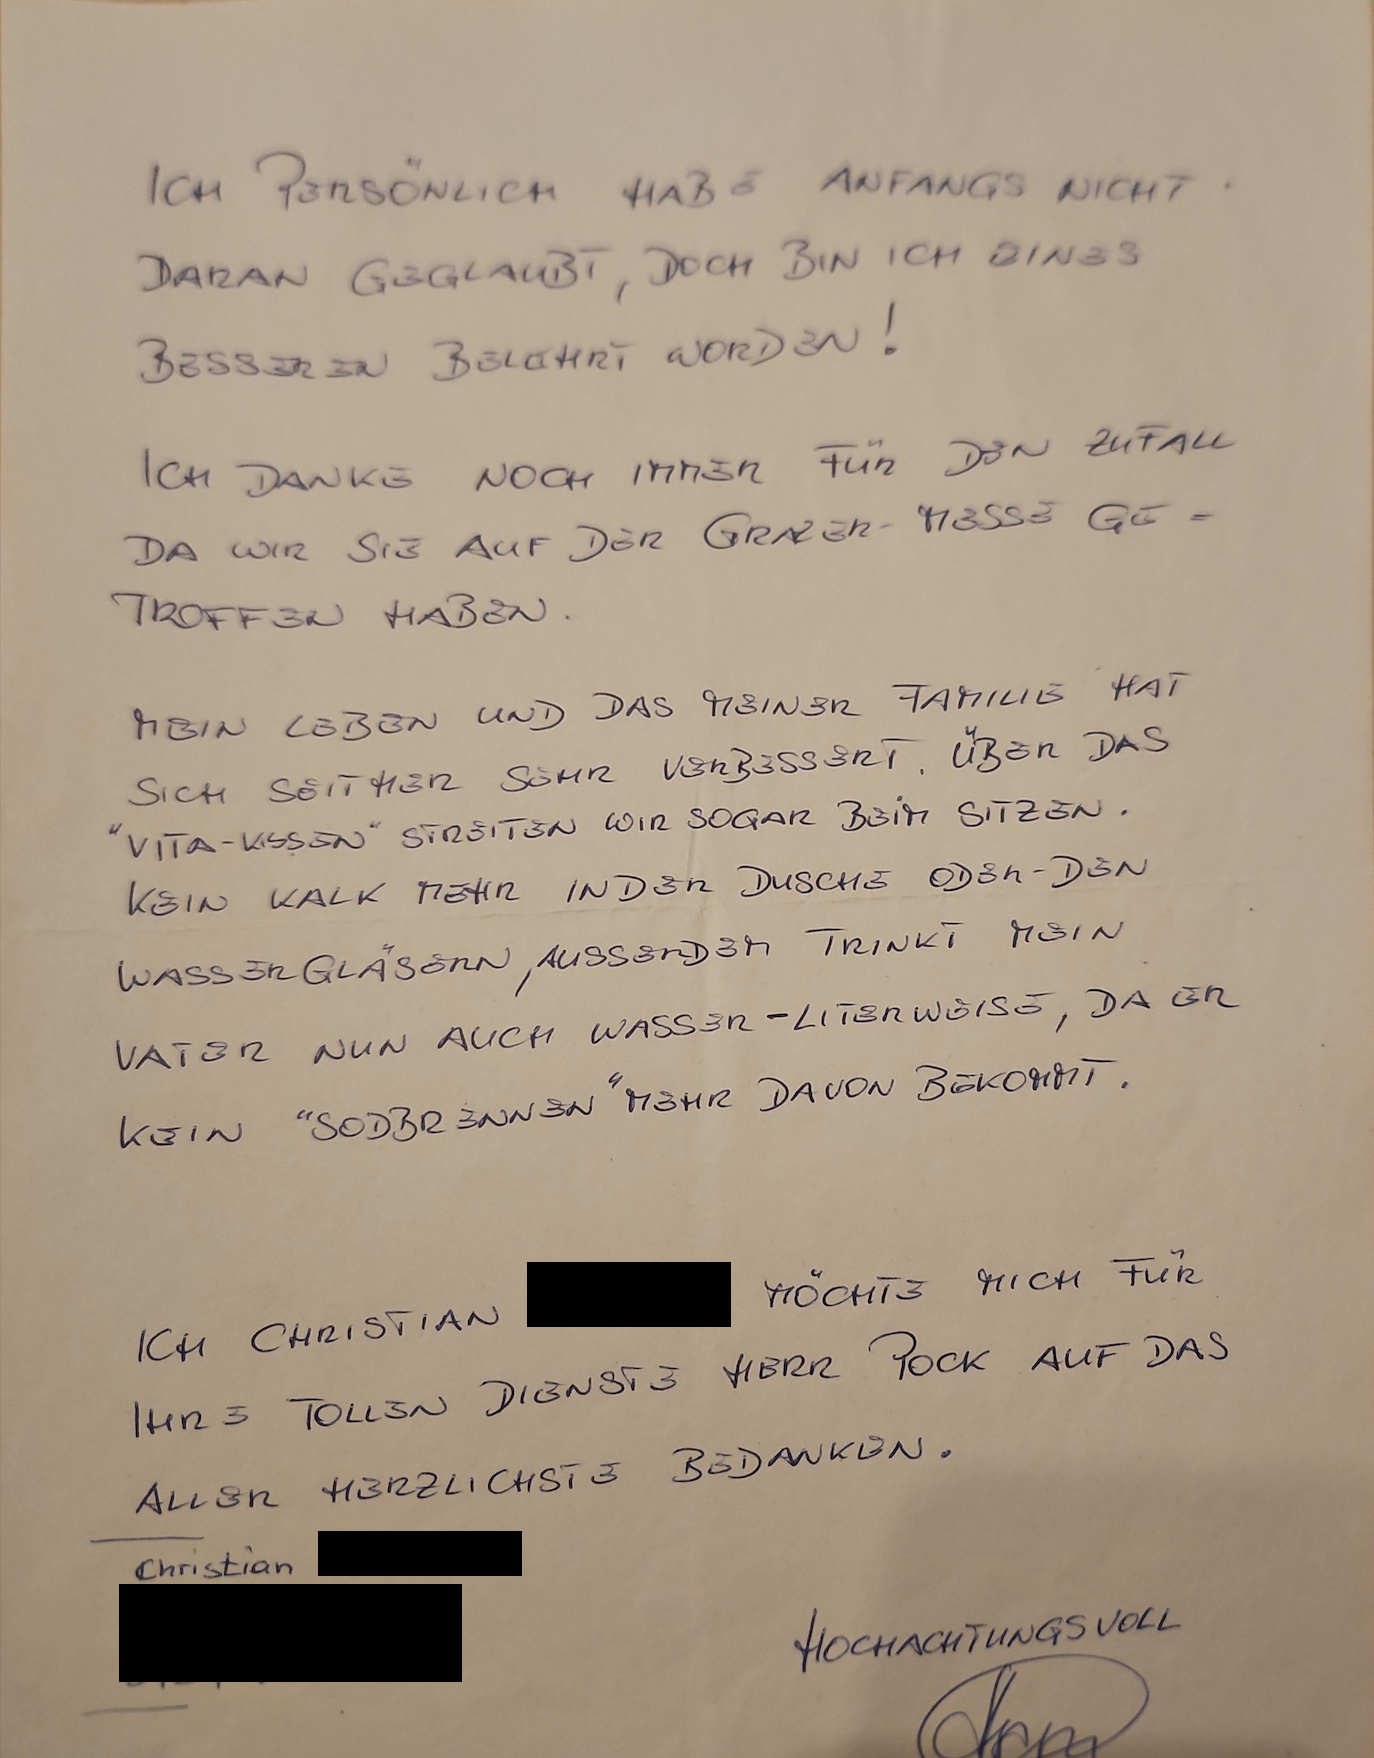 ICH PERSÖNLICH HABE ANFANGS NICHT
DARAN GEGLAUBT, DOCH BIN ICH EINES
BESSEREN BELEHRT WORDEN!
ICH DANKE NOCH IMMER FÜR DEN ZUFALL
DA WIR SIE AUF DER GRAZER-MESSE GE=
TROFFEN HABEN.
MEIN LEBEN UND DAS MEINER FAMILIE HAT
SICH SEITHER SEHR VERBESSERT. ÜBER DAS
"VITA-KISSEN" STREITEN WIR SOGAR BEIM SITZEN.
KEIN KALK MEHR IN DER DUSCHE ODER-DEN
WASSERGLÄSERN, AUSSERDEM TRINKT MEIN
VATER NUN AUCH WASSER-LITERWEISE, DA ER
KEIN "SODBRENNEN" MEHR DAVON BEKOMMT.
ICH CHRISTIAN MÖCHTE MICH FÜR
IHRE TOLLEN DIENSTE HERR POCK AUF DAS
ALLER HERZLICHSTE BEDANKEN.
Christian
HOCHACHTUNGSVOLL